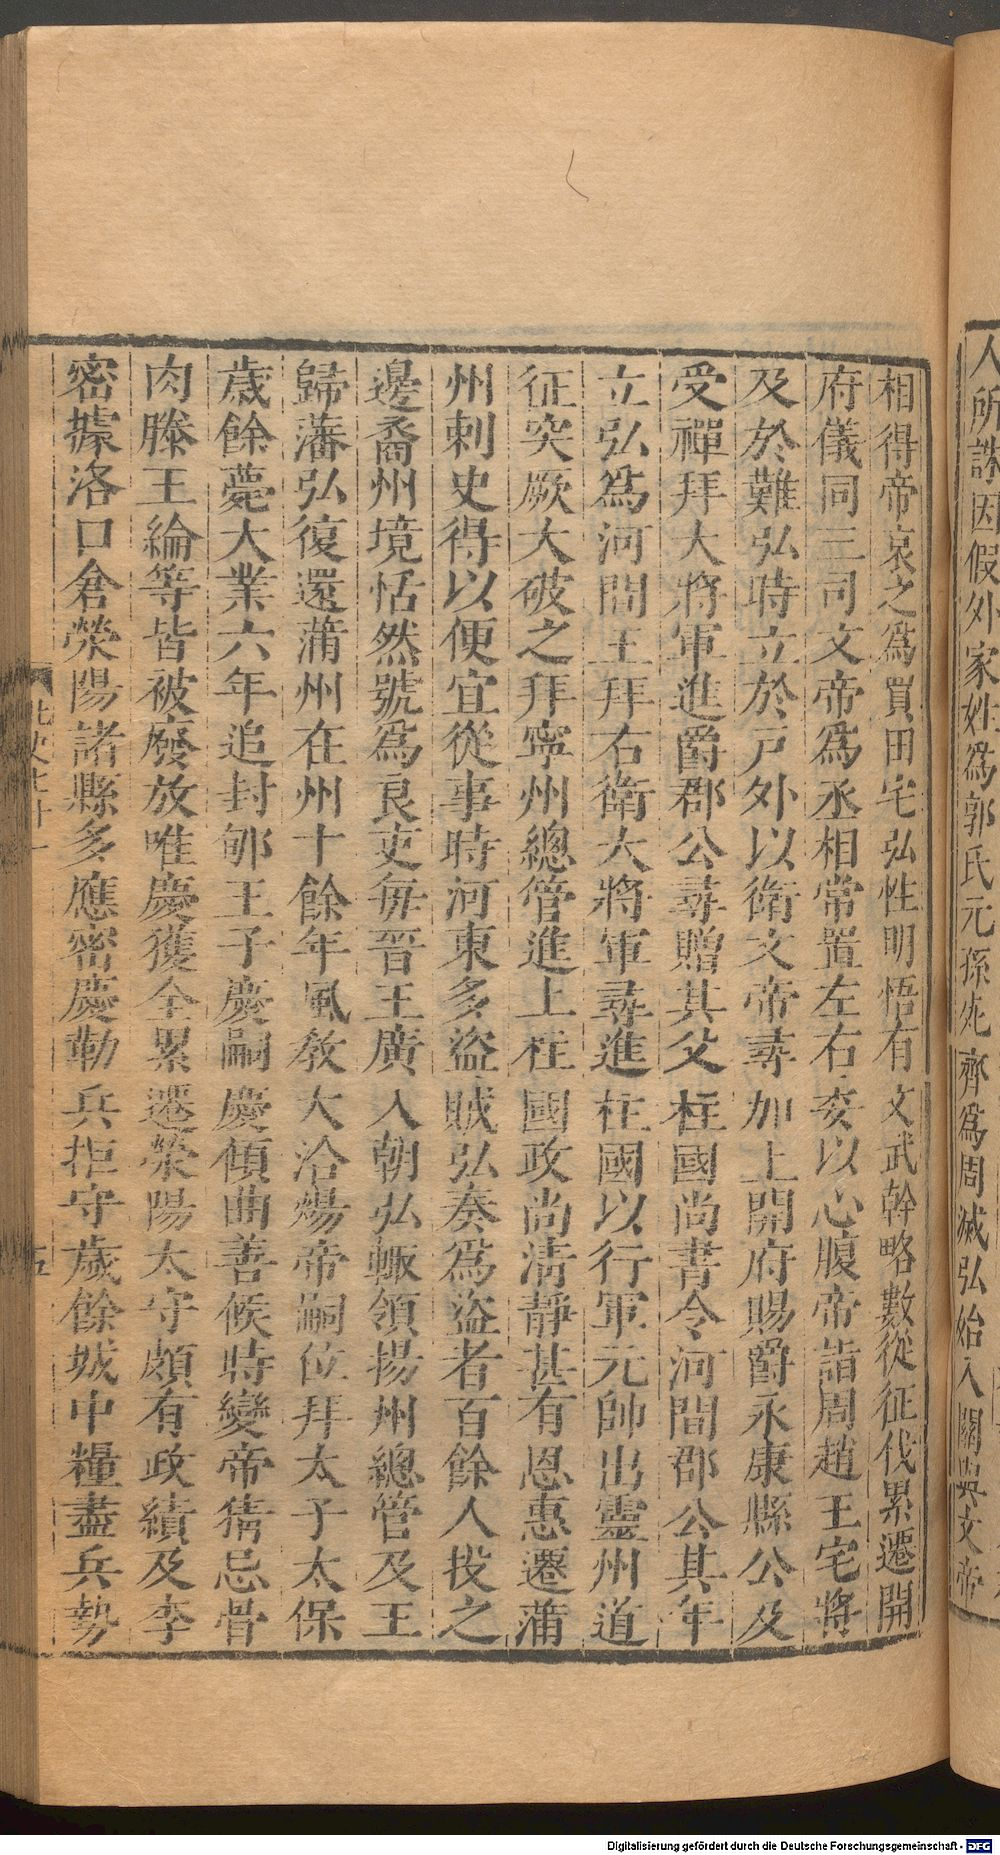 人所誅因假外家姓爲郭氏元孫死齊爲周滅弘始入關與文帝
相得帝哀之爲買田宅弘性明悟有文武幹略數從征伐累遷開
府儀同三司文帝爲丞相常置左右委以心腹帝詣周趙王宅將
及於難弘時立於戶外以衛文帝尋加上開府賜爵永康縣公及
受禪拜大將軍進爵郡公尋贈其父柱國尚書令河間郡公其年
立弘爲河間王拜右衛大將軍尋進柱國以行軍元帥出靈州道
征突厥大破之拜寧州總管進上柱國政尚淸靜甚有恩惠遷蒲
州刺史得以便宜從事時河東多盜賊弘奏爲盜者百餘人投之
邊裔州境恬然號爲良吏每晉王廣入朝弘輒領揚州總管及王
歸藩弘復還蒲州在州十餘年風敎大洽煬帝嗣位拜太子太保
歲餘薨大業六年追封郇王子慶嗣慶傾曲善候時變帝猜忌骨
肉滕王綸等皆被廢放唯慶獲全累遷滎陽太守頗有政績及李
密據洛口倉滎陽諸縣多應密慶勒兵拒守歲餘城中糧盡兵勢
Digitalisierung gefördert durch die Deutsche Forschungsgemeinschaft - DFG